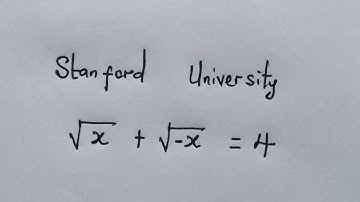 Stanford University
√x + √-x = 4